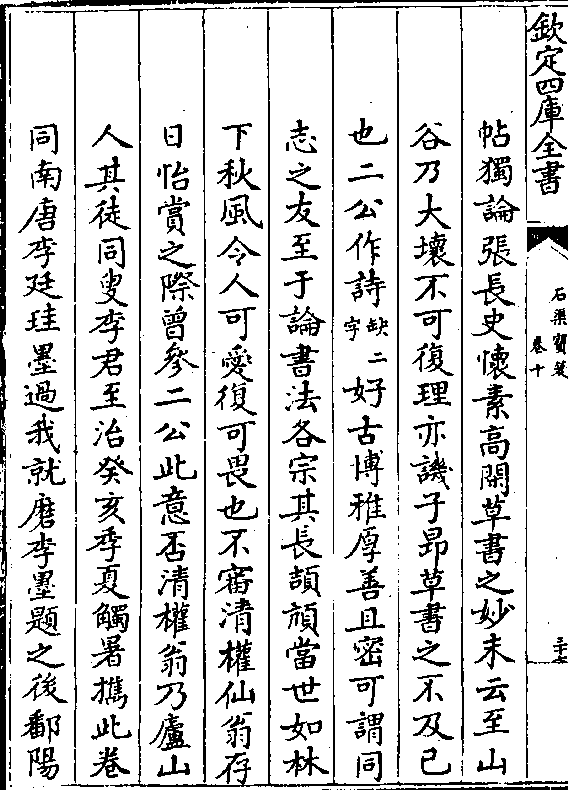 欽定四庫全書
石渠寶笈
卷十
帖獨論張長史懷素高閑草書之妙末云至山
谷乃大壞不可復理亦譏子昻草書之不及已
也二公作詩缺二字好古博雅厚善且密可謂同
志之友至于論書法各宗其長頡頏當世如林
下秋風令人可愛復可畏也不審清權仙翁存
日怡賞之際曾參二公此意否清權翁乃廬山
人其徒同叟李君至治癸亥季夏觸暑攜此卷
同南唐李廷珪墨過我就磨李墨題之後鄱陽